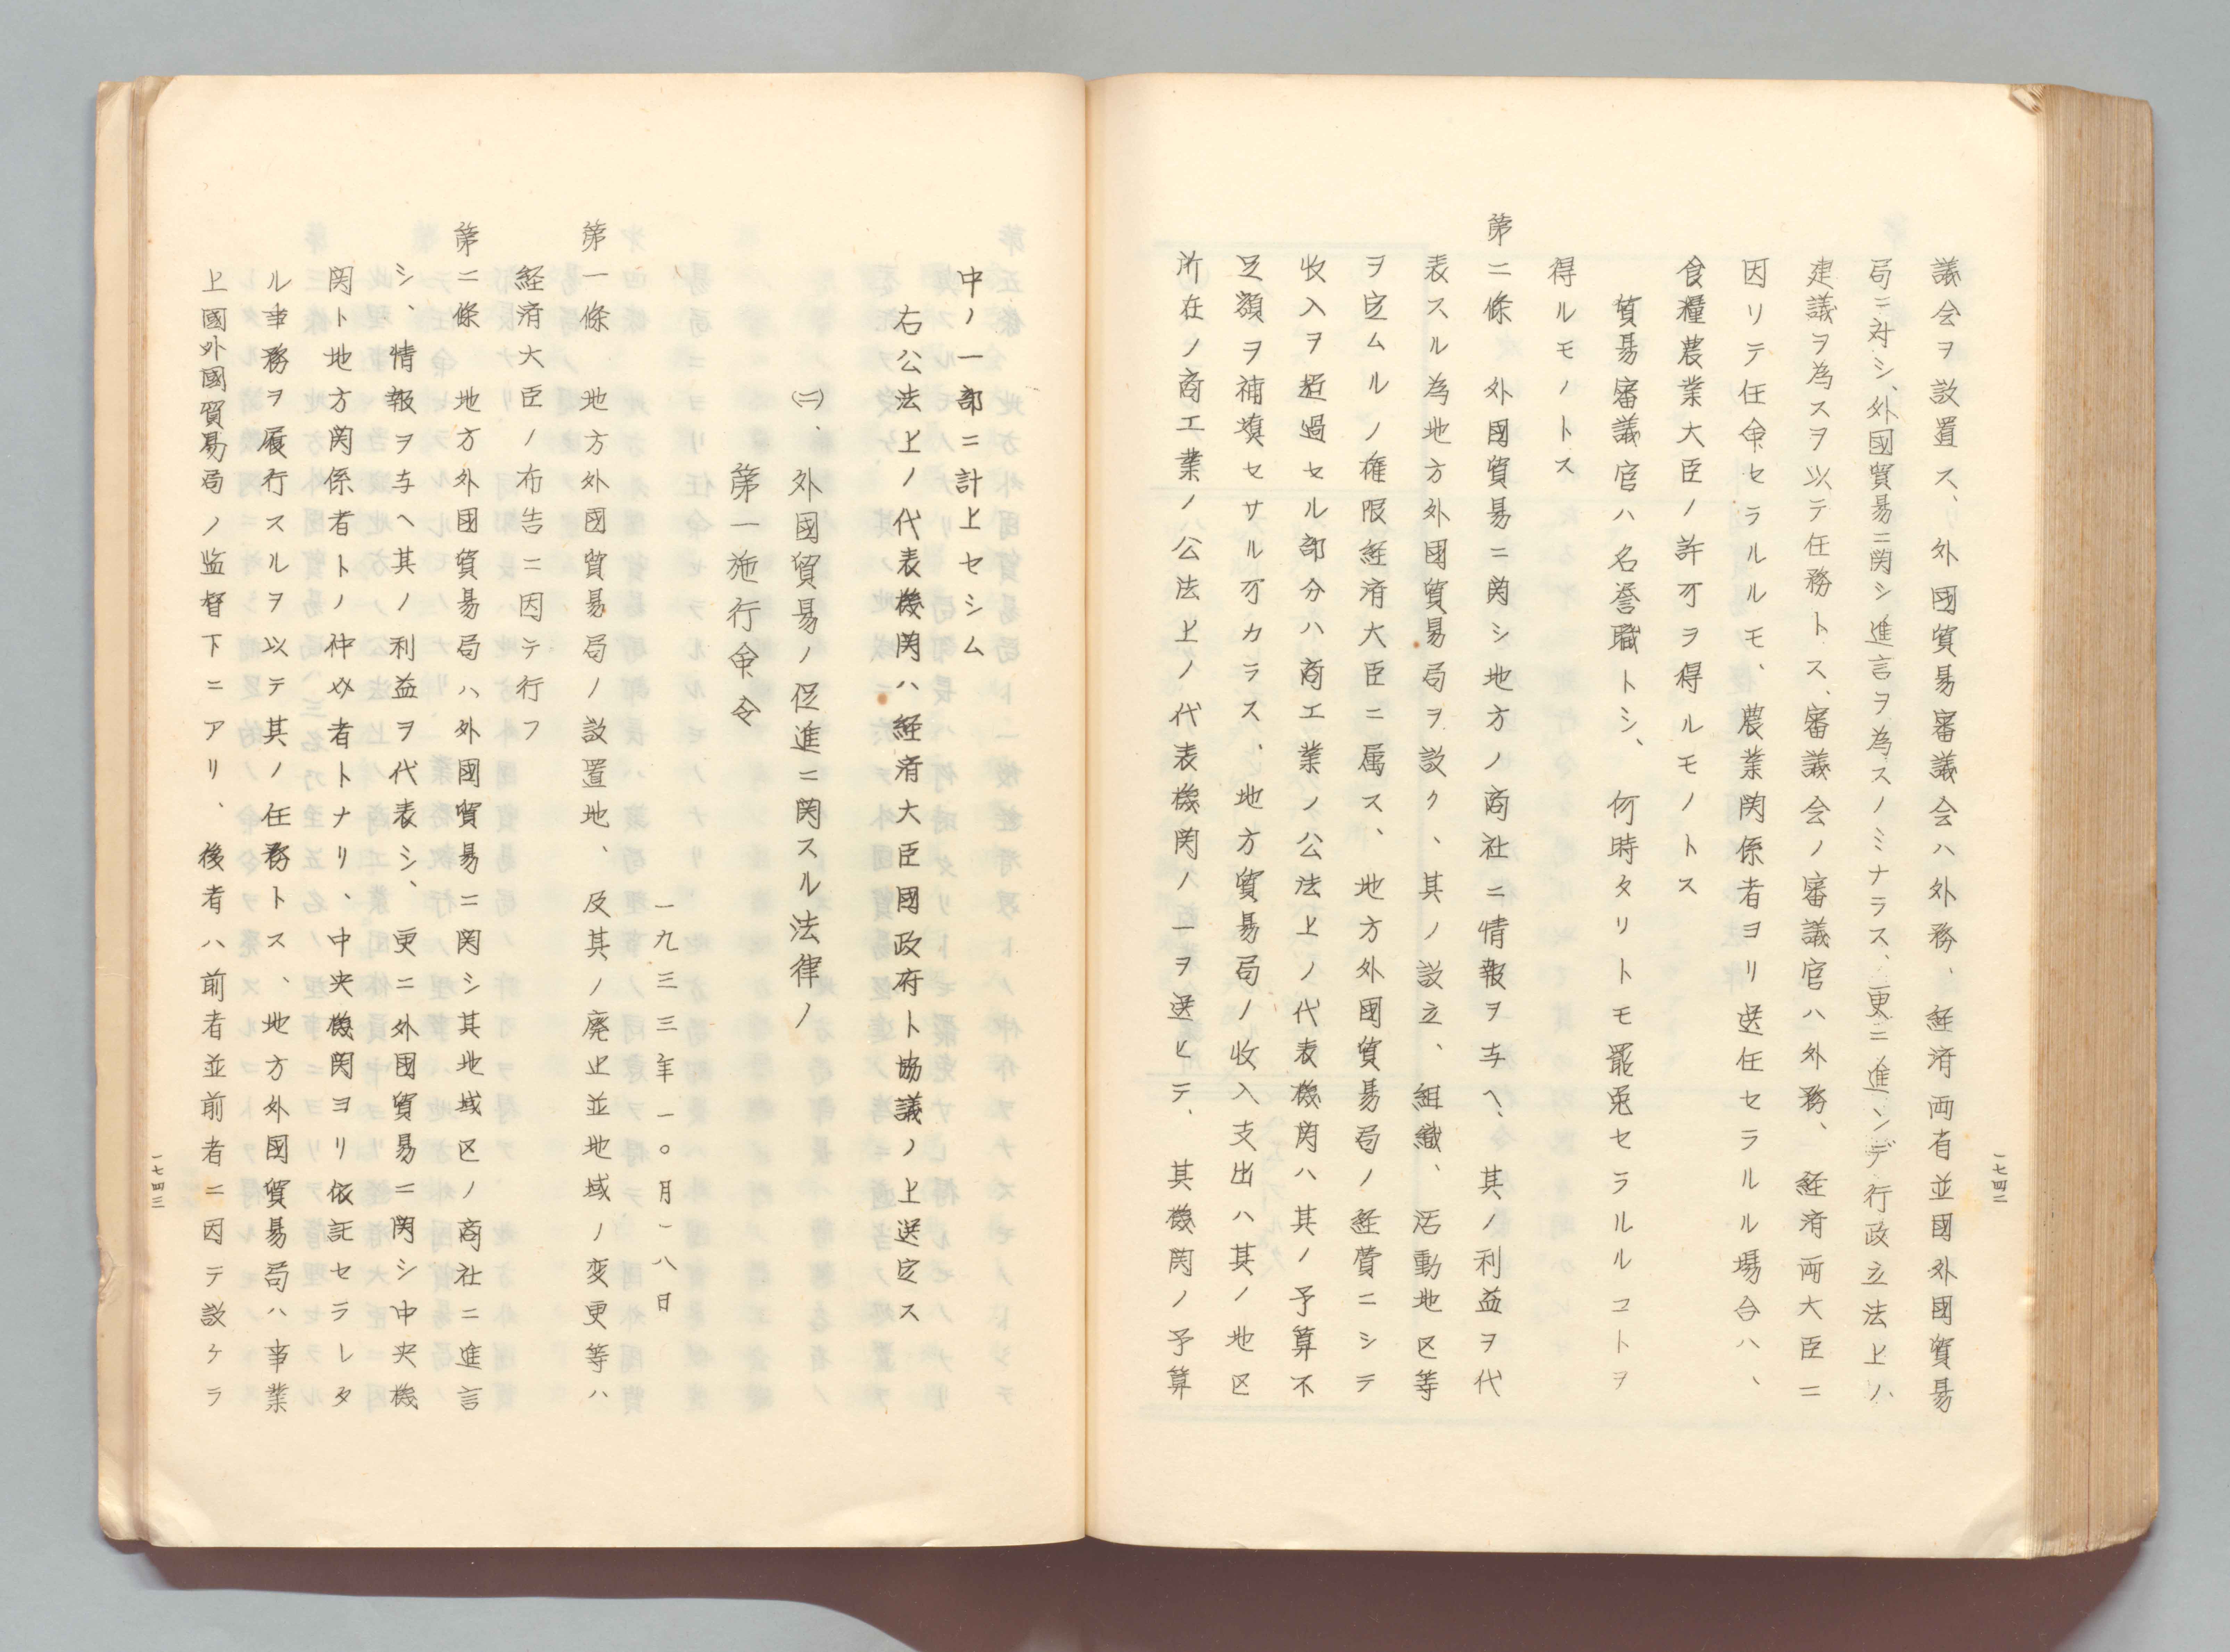 議会ヲ設置ス、外國貿易審議会ハ外務、経済両省並國外國貿易
局ニ対シ、外國貿易ニ関シ進言ヲ為スノミナラス、更ニ進ンデ行政立法上ノ
建議ヲ為スヲ以テ任務トス、審議会ノ審議官ハ外務、経済両大臣ニ
因リテ任命セラルルモ、農業関係者ヨリ送任セラルル場合ハ、
食糧農業大臣ノ許可ヲ得ルモノトス
貿易審議官ハ名誉職トシ、何時タリトモ罷免セラルルコトヲ
得ルモノトス
第二條　外國貿易ニ関シ地方ノ商社ニ情報ヲ与ヘ、其ノ利益ヲ代
表スル為地方外國貿易局ヲ設ク、其ノ設立、組織、活動地区等
ヲ定ムルノ権限経済大臣ニ属ス、地方外國貿易局ノ経費ニシテ
收入ヲ超過セル部分ハ商工業ノ公法上ノ代表機関ハ其ノ予算不
足額ヲ補填セサル可カラス、地方貿易局ノ收入支出ハ其ノ地区
所在ノ商工業ノ公法上ノ代表機関ノ一ヲ送ヒテ、其機関ノ予算
一七四二
中ノ一部ニ計上セシム
右公法上ノ代表機関ハ経済大臣國政府ト協議ノ上送定ス
㈡、外國貿易ノ促進ニ関スル法律ノ
第一施行命令
一九三三年一〇月一八日
第一條　地方外國貿易局ノ設置地、及其ノ廃止並地域ノ変更等ハ
経済大臣ノ布告ニ因テ行フ
第二條　地方外國貿易局ハ外國貿易ニ関シ其地域区ノ商社ニ進言
シ、情報ヲ与ヘ其ノ利益ヲ代表シ、更ニ外國貿易ニ関シ中央機
関ト地方関係者トノ仲介者トナリ、中央機関ヨリ依託セラレタ
ル事務ヲ履行スルヲ以テ其ノ任務トス、地方外國貿易局ハ事業
上國外國貿易局ノ監督下ニアリ、後者ハ前者並前者ニ因テ設ケラ
一七四三